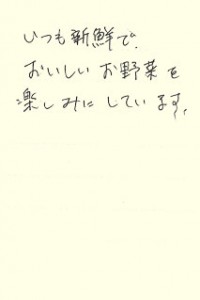 いつも新鮮で、
おいしいお野菜を
楽しみにしています。